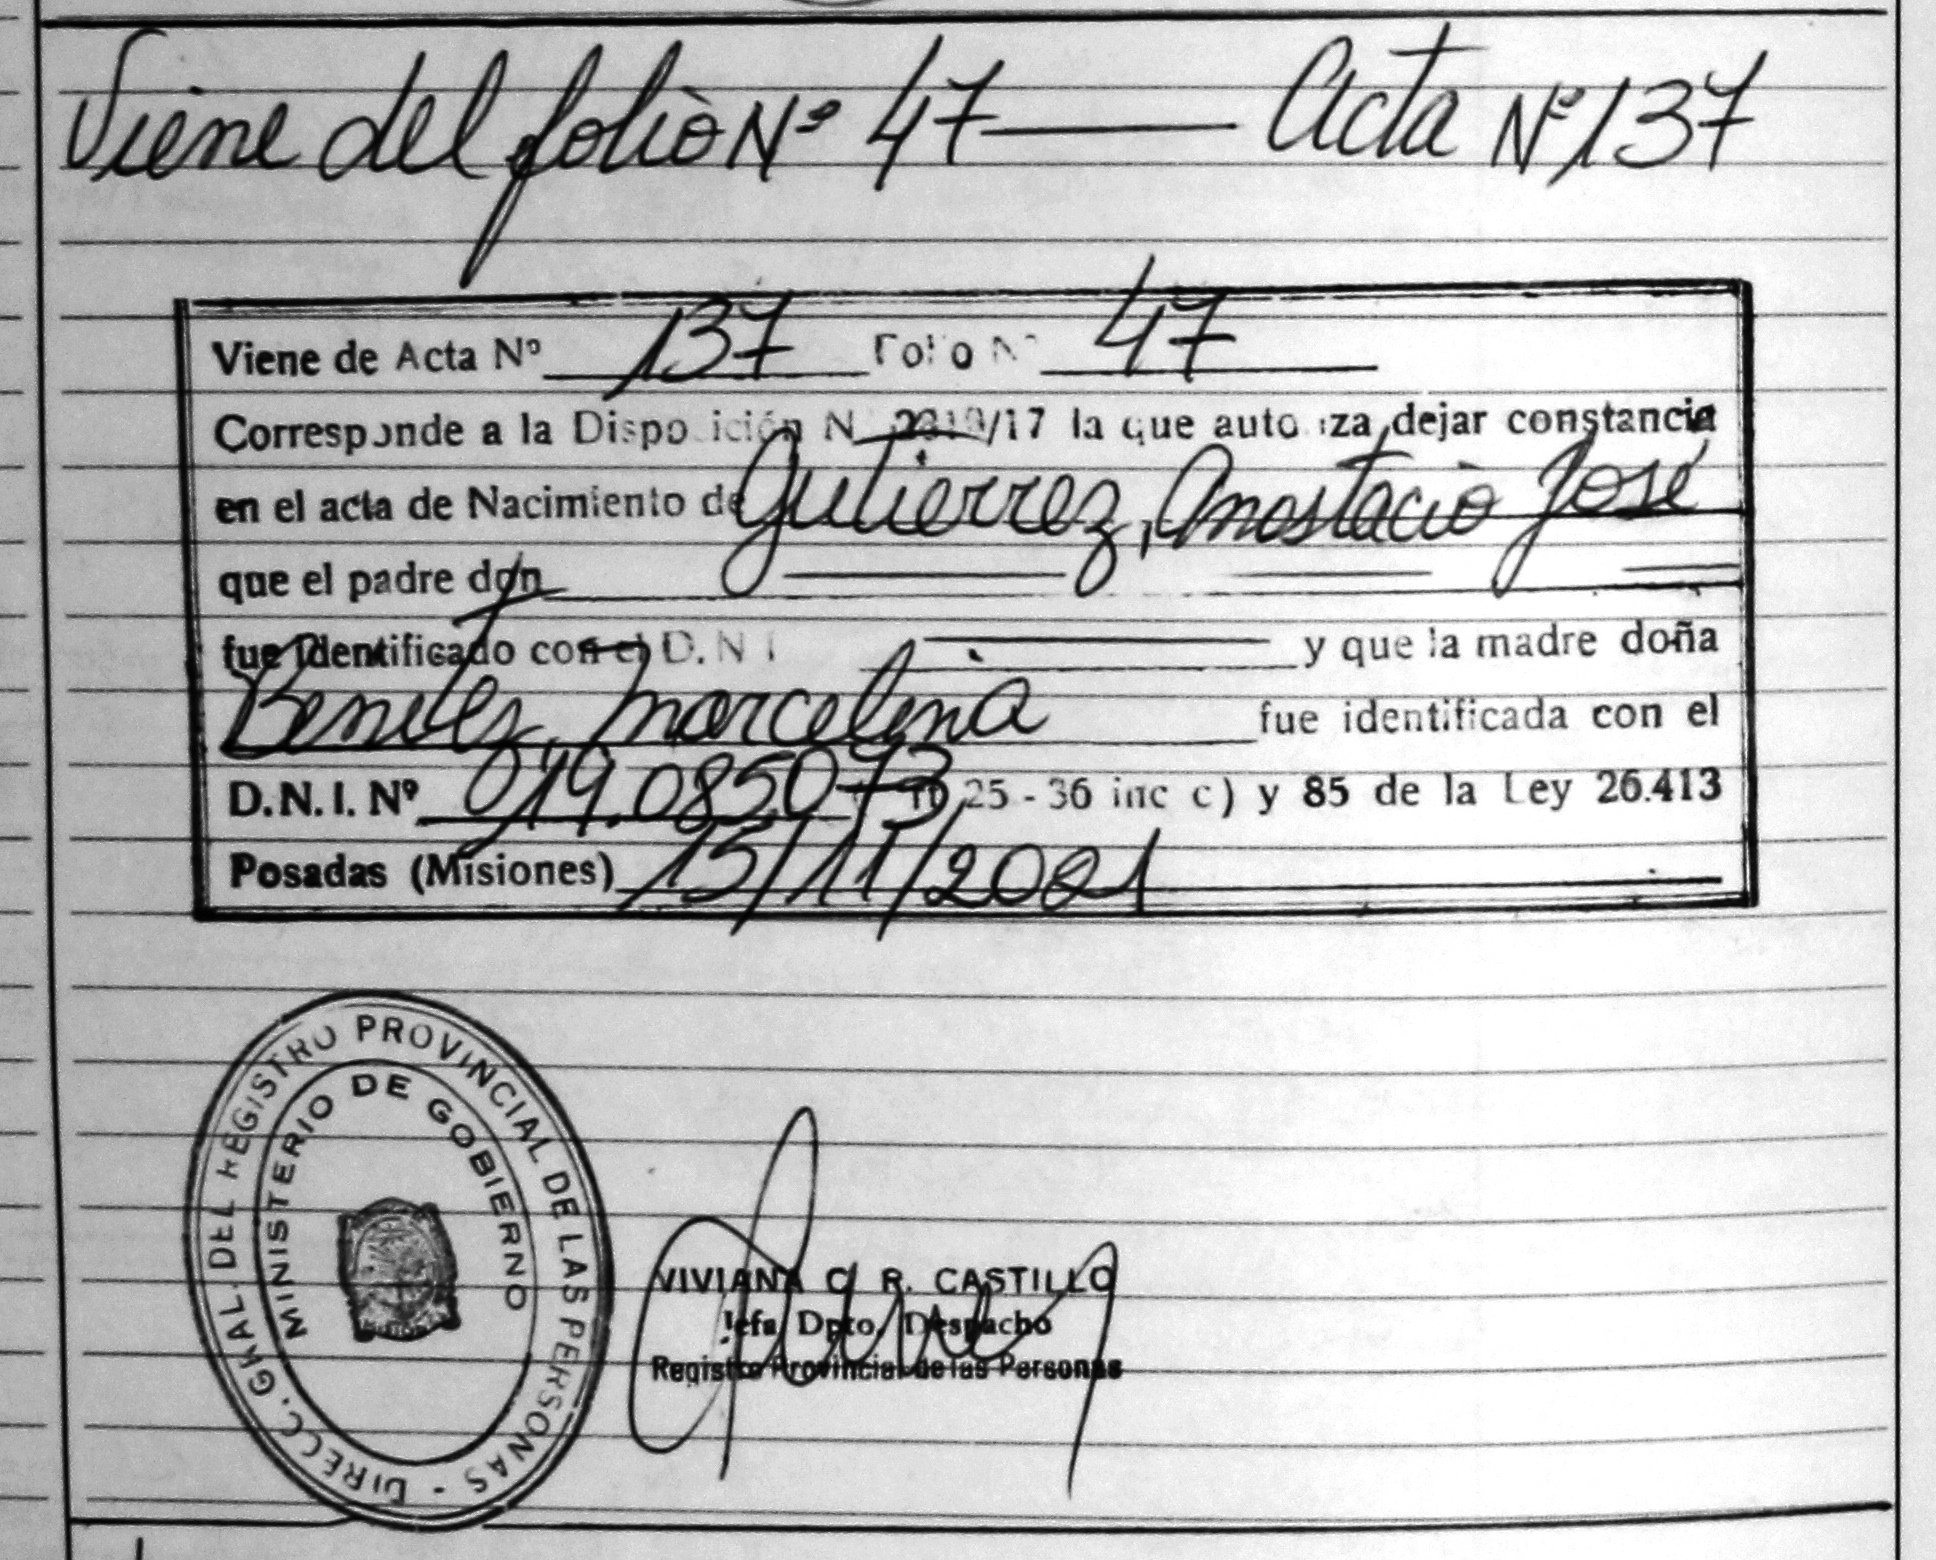 Viene del folio Nº 47 — Acta Nº 137
Viene de Acta Nº 137 Folio Nº 47
Corresponde a la Disposición N /17 la que autoriza dejar constancia
en el acta de Nacimiento de Gutierrez, Anastacio José
que el padre don
fue identificado con el D.N.I y que la madre doña
Benitez, Marcelina fue identificada con el
D.N.I. Nº 25 - 36 inc c) y 85 de la Ley 26.413
Posadas (Misiones) 15/11/2021
DIRECC. GRAL. DEL REGISTRO PROVINCIAL DE LAS PERSONAS -
MINISTERIO DE GOBIERNO
VIVIANA C. R. CASTILLO
Jefa Dpto. Despacho
Registro Provincial de las Personas